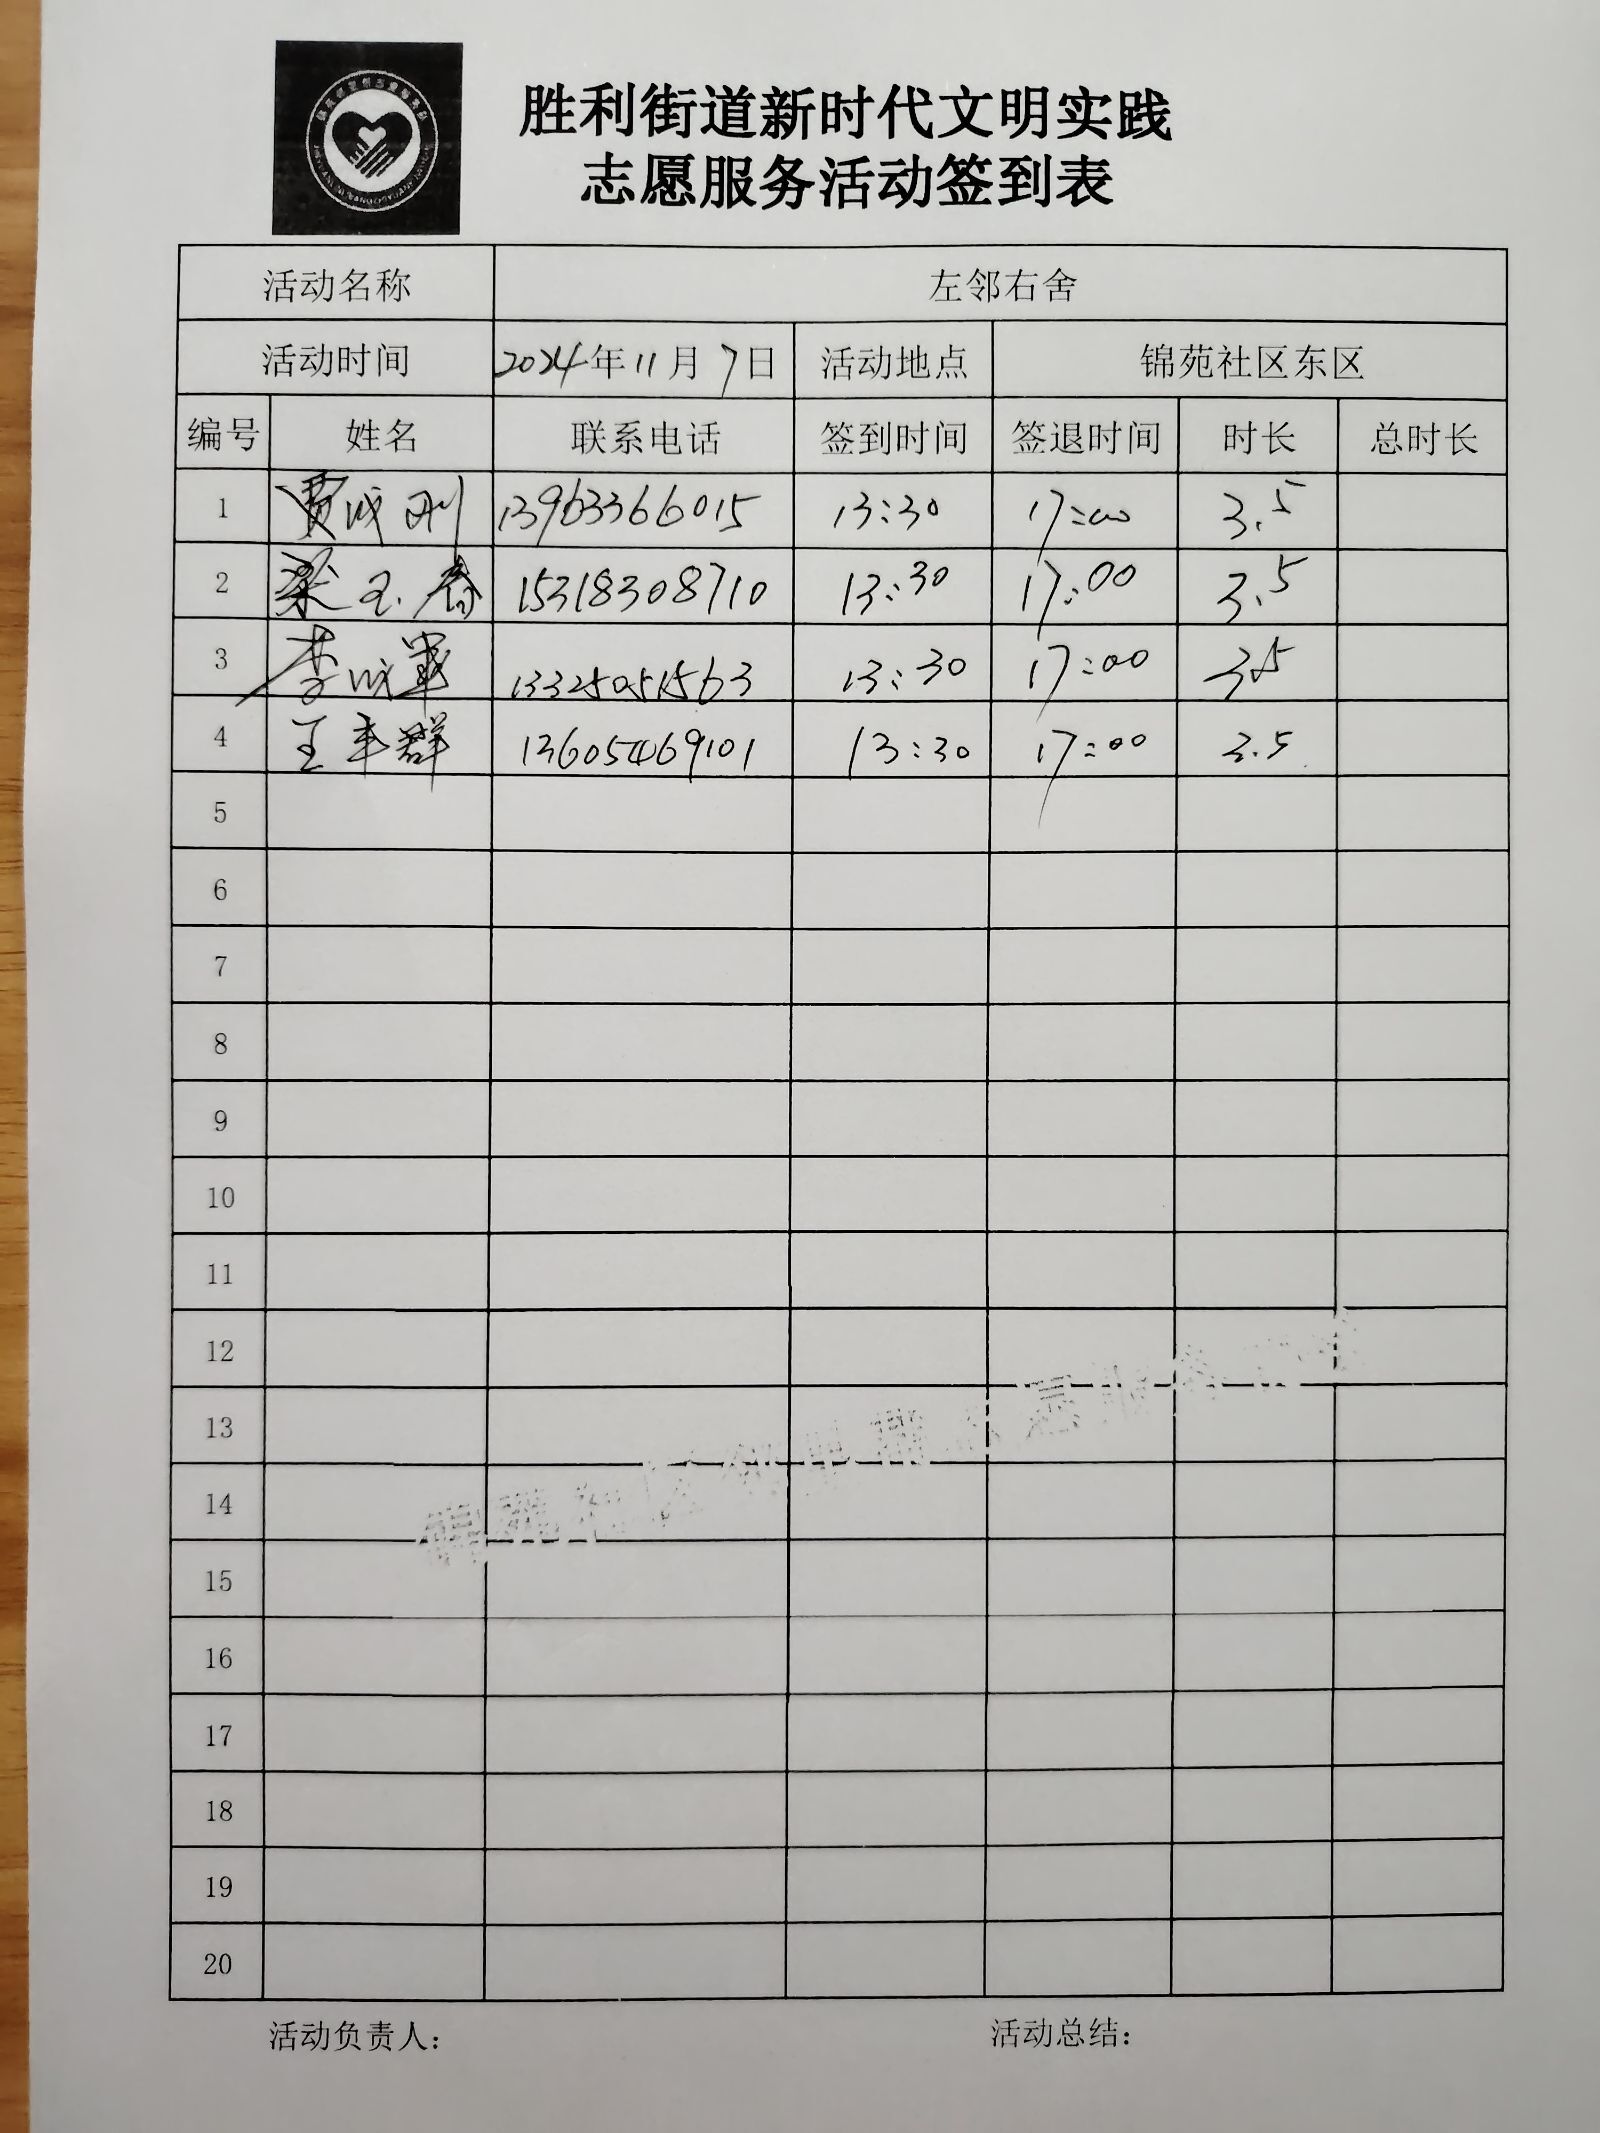 胜利街道新时代文明实践
志愿服务活动签到表
活动名称 左邻右舍
活动时间 2024年11月7日 活动地点 锦苑社区东区
编号 姓名 联系电话 签到时间 签退时间 时长 总时长
1 贾成刚 13963366015 13:30 17:00 3.5
2 梁玉春 15318308710 13:30 17:00 3.5
3 李成军 13325051563 13:30 17:00 3.5
4 王丰群 13605469101 13:30 17:00 3.5
5
6
7
8
9
10
11
12
13
14
15
16
17
18
19
20
活动负责人: 活动总结: